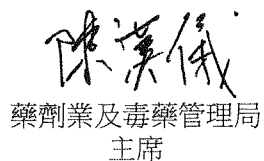 陳漢儀
藥劑業及毒藥管理局
主席